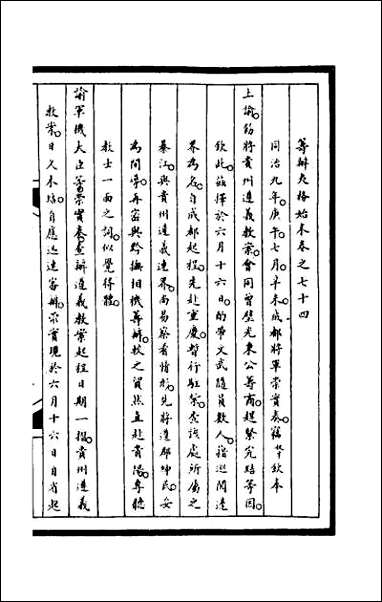 籌辦夷務始末卷之七十四
同治九年庚午七月辛未成都將軍崇實奏竊奴才欽奉
上諭飭將貴州遵義教案會同曾璧光秉公籌商趕緊完結等因
欽此茲擇於六月十六日酌帶文武隨員數人藉巡閱邊
界為名自成都起程先赴重慶暫行駐紮查該處所屬之
綦江與貴州遵義連界尚易察看情形兒將遵郡紳民妥
為開導再密與黔撫相機籌辦較之貿然直赴貴陽專聽
教士一面之詞似覺得體
諭軍機大臣等崇實奏查辦遵義教案起程日期一摺貴州遵義
教案日久未結自應迅速審辦崇實現於六月十六日自省起